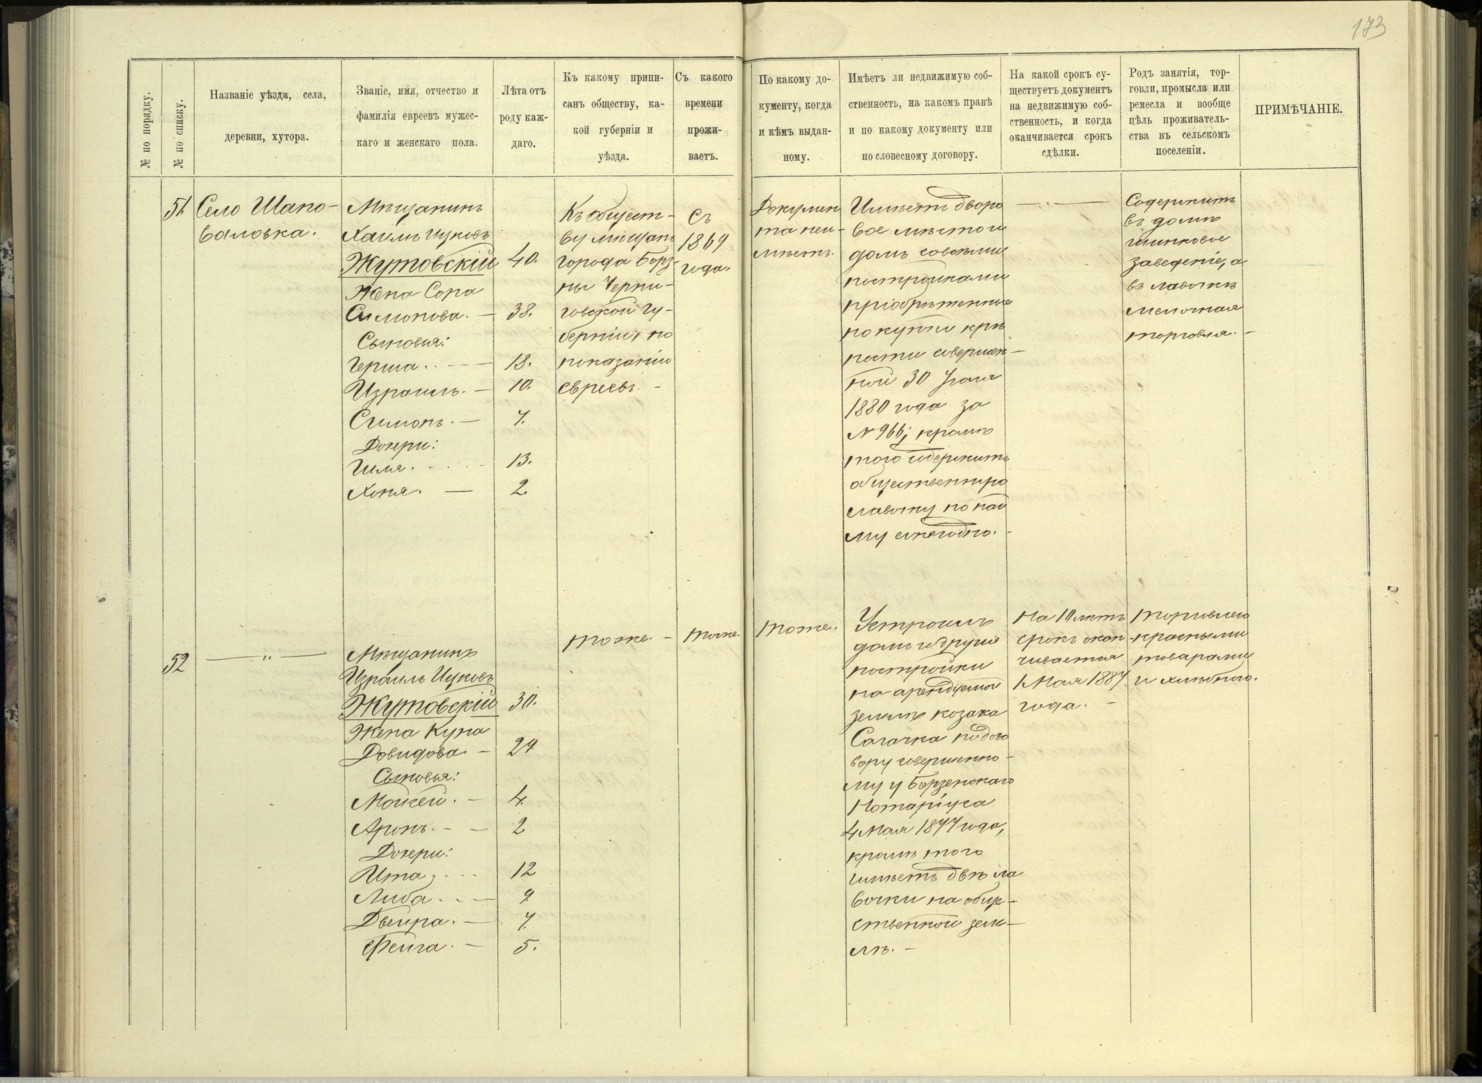 173
№ по порядку.
№ по списку.
Названіе уѣзда, села,
деревни, хутора.
Званіе, имя, отчество и
фамилія евреевъ мужес-
каго и женскаго пола.
Лѣта отъ
роду каж-
даго.
Къ какому припи-
санъ обществу, ка-
кой губерніи и
уѣзда.
Съ какого
времени
прожи-
ваетъ.
По какому до-
кументу, когда
и кѣмъ выдан-
ному.
Имѣетъ ли недвижимую соб-
ственность, на какомъ правѣ
и по какому документу или
по словесному договору.
На какой срокъ су-
ществуетъ документъ
на недвижимую соб-
ственность, и когда
оканчивается срокъ
сдѣлки.
Родъ занятія, тор-
говли, промысла или
ремесла и вообще
цѣль проживатель-
ства въ сельскомъ
поселеніи.
ПРИМѢЧАНІЕ.
51
Село Шапо-
валовка.
Мѣщанинъ
Хаимъ Ицковъ
Жутовскій
Жена Сора
Симонова. —
Сыновья:
Герша. . — —
Израиль. —
Симонъ. —
Дочери:
Гиля. . . .
Хоня. —
40.
38.
18.
10.
7.
13.
2
Къ общест-
ву мѣщанъ
города Борз-
ны Черни-
говской гу-
берніи, по
показанію
евреевъ. —
Съ
1869
года.
Докумен
та неи-
мѣетъ.
Имѣетъ дворо
вое мѣсто и
домъ со всѣми
постройками
пріобрѣтенные
по купчей крѣ
пости совершен—
ной 30 Іюля
1880 года за
№ 966; кромѣ
того содержитъ
общественную
лавочку по най
му ежегодно. —
— „ —
Содержитъ
въ домѣ
шинковое
заведеніе, а
въ лавочкѣ
мелочная
торговля. —
52
— „ —
Мѣщанинъ
Израиль Ицковъ
Жутовскій
Жена Куна
Довидова —
Сыновья:
Мойсей. —
Аронъ. — —
Дочери:
Ита. . . .
Либа. . . —
Двейра. —
Фейга. —
30.
29
4.
2
12
9
7.
5.
тоже. —
тоже.
тоже.
Устроилъ
домъ и другія
постройки
на арендуемой
землѣ козака
Согачка по дого
вору совершенно-
му у Борзенскаго
Нотаріуса
4 Мая 1877 года,
кромѣ того
имѣетъ двѣ ла
вочки на обще-
ственной зем—
лѣ. —
На 10 лѣтъ
срокъ окан-
чивается
1 Мая 1887
года. —
торговлею
красными
товарами
и хлѣбного.